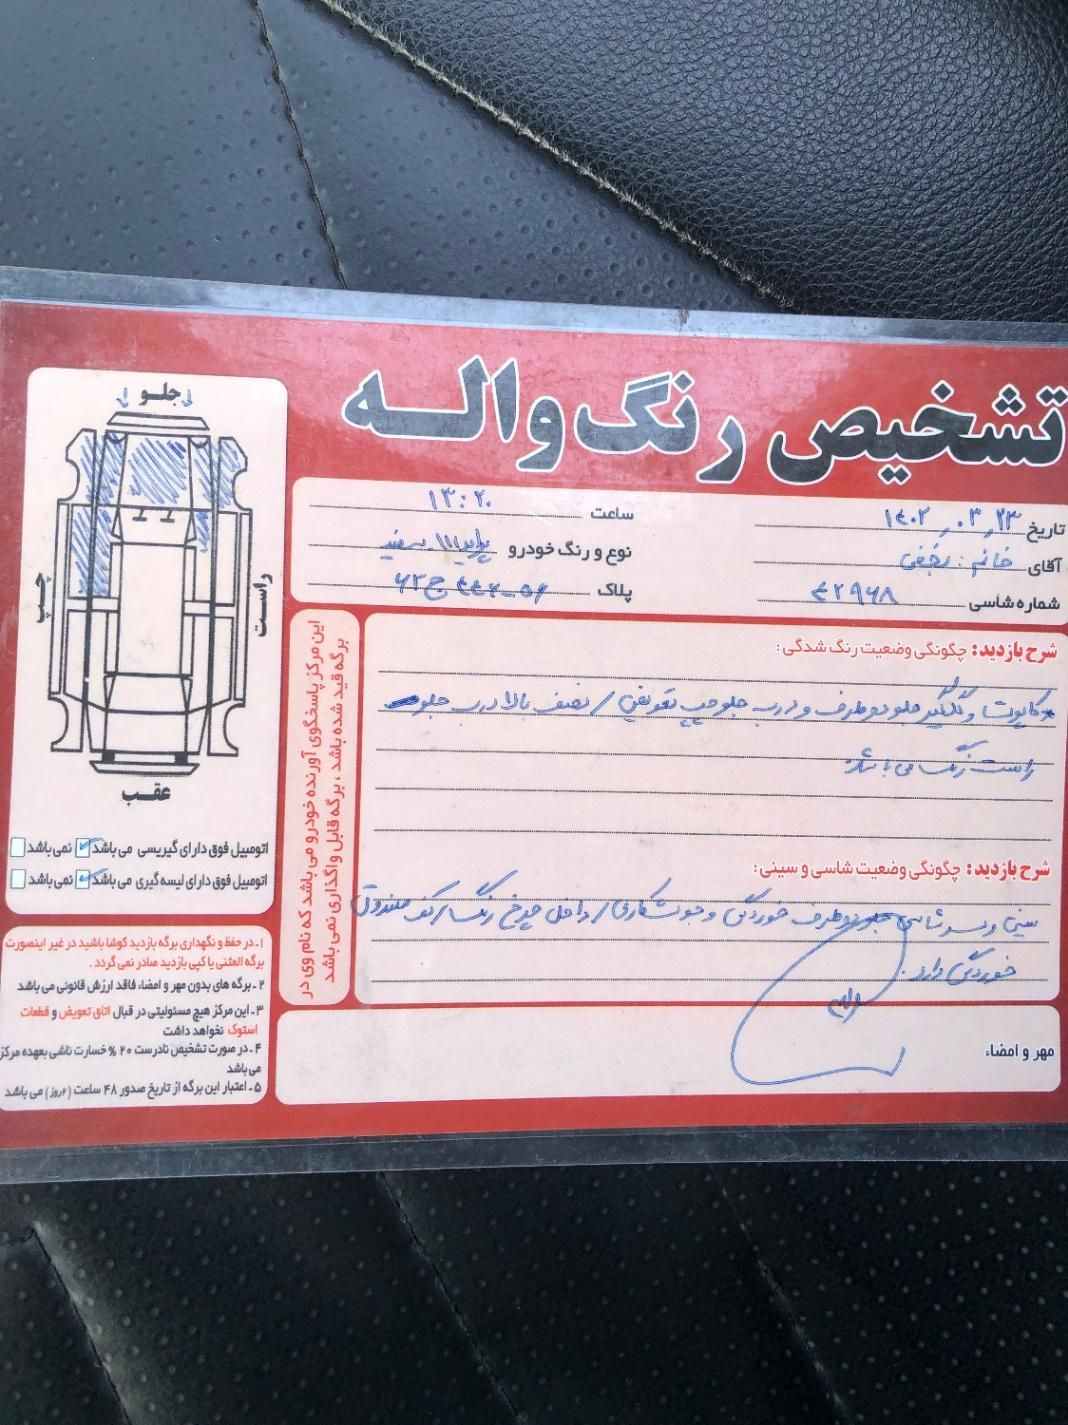 تشخیص رنگ واله
تاریخ ۱۴۰۲٫۰۳٫۲۳
ساعت ۱۳:۲۰
آقای خانم : نجفی
نوع و رنگ خودرو پراید۱۱۱_سفید
شماره شاسی ۴۲۹۶۸
پلاک
شرح بازدید: چگونگی وضعیت رنگ شدگی:
کاپوت و گلگیر جلو دو طرف و درب جلو چپ تعویض / نصف بالا درب جلو
راست رنگ می باشد
شرح بازدید: چگونگی وضعیت شاسی و سینی:
سینی و سر شاسی جلو دو طرف خوردگی و جوشکاری / داخل چرخ رنگ / کف صندوق
خوردگی دارد.
واله
مهر و امضاء
این مرکز پاسخگوی آورنده خودرو می باشد که نام وی در
برگه قید شده باشد ، برگه قابل واگذاری نمی باشد
جلو
چپ
راست
عقب
اتومبیل فوق دارای گیریسی می باشد نمی باشد
اتومبیل فوق دارای لیسه گیری می باشد نمی باشد
۱_در حفظ و نگهداری برگه بازدید کوشا باشید در غیر اینصورت
برگه المثنی یا کپی بازدید صادر نمی گردد .
۲_برگه های بدون مهر و امضاء فاقد ارزش قانونی می باشد
۳_این مرکز هیچ مسئولیتی در قبال اتاق تعویض و قطعات
استوک نخواهد داشت
۴_در صورت تشخیص نادرست ۲۰ % خسارت ناشی بعهده مرکز
می باشد
۵_اعتبار این برگه از تاریخ صدور ۴۸ ساعت (۲روز) می باشد